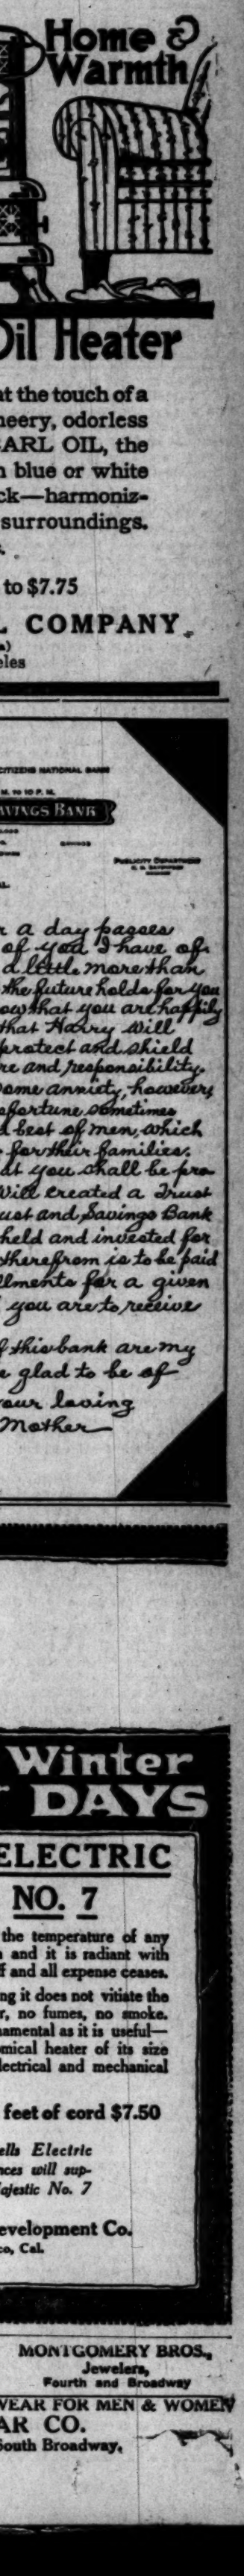 Home &
Warmth
Oil Heater
at the touch of a
heery, odorless
EARL OIL, the
n blue or white
ck—harmoniz-
surroundings.
to $7.75
L COMPANY
a)
eles
CITIZENS NATIONAL BANK
M. TO 10 P. M.
AVINGS BANK
SAVINGS
PUBLICITY DEPARTMENT
r a day passes
of you I have of-
a little more than
the future holds for you
ow that you are happily
that Harry will
protect and shield
re and responsibility.
ome anxiety, however,
sfortune sometimes
d best of men, which
for their families.
at you shall be pro-
Will created a Trust
ust and Savings Bank
held and invested for
therefrom is to be paid
llments for a given
you are to receive
f this bank are my
e glad to be of
our loving
Mother
Winter
DAYS
ELECTRIC
NO. 7
the temperature of any
and it is radiant with
f and all expense ceases.
ng it does not vitiate the
r, no fumes, no smoke.
namental as it is useful—
mical heater of its size
lectrical and mechanical
feet of cord $7.50
ells Electric
nces will sup-
ajestic No. 7
evelopment Co.
co, Cal.
MONTGOMERY BROS.,
Jewelers,
Fourth and Broadway
WEAR FOR MEN & WOMEN
AR CO.
South Broadway,